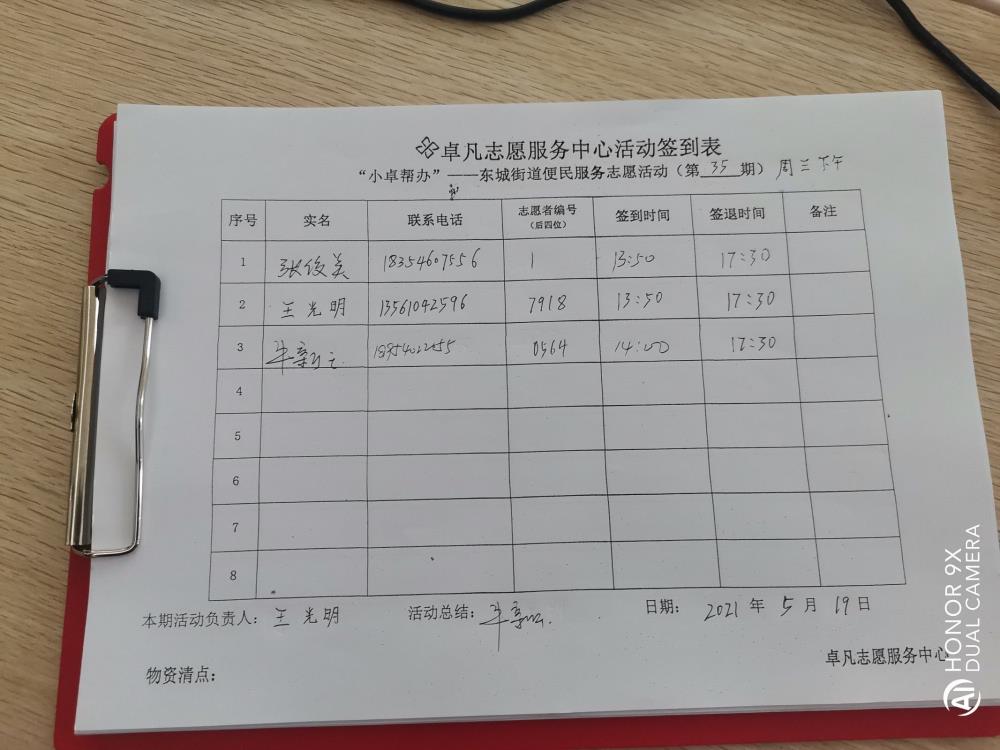 卓凡志愿服务中心活动签到表
“小卓帮办”——东城街道便民服务志愿活动（第35期）周三下午
序号 实名 联系电话 志愿者编号（后四位） 签到时间 签退时间 备注
1 张俊美 18354607556 1 13:50 17:30
2 王光明 13561042596 7918 13:50 17:30
3 0564 14:00 17:30
4
5
6
7
8
本期活动负责人：王光明 活动总结： 日期：2021年5月19日
卓凡志愿服务中心
物资清点：
HONOR 9X
AI DUAL CAMERA